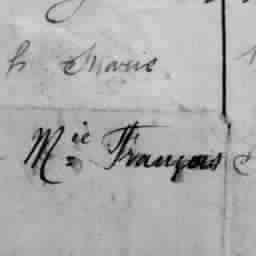 h Marie
Mic François